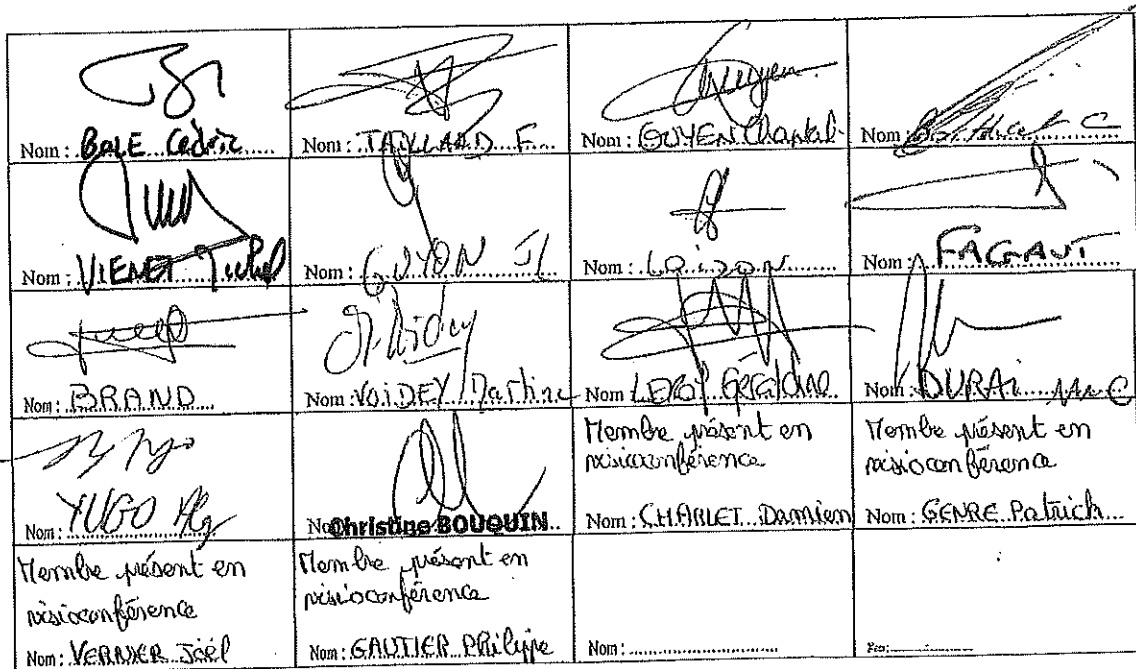 Nom : BOLE Cédric
Nom : TAILLARD F.
Nom : GUYEN Chantal
Nom : C
Nom : VIENET Michel
Nom : GUYON JL
Nom : LOIZON
Nom : FAGAUT
Nom : BRAND
Nom : VOIDEY Martine
Nom LEROY Géraldine
Nom : DURAI M C
Nom : YUGO
Christine BOUQUIN
Membre présent en
visioconférence
Nom : CHARLET Damien
Membre présent en
visioconférence
Nom : GENRE Patrick
Membre présent en
visioconférence
Nom : VERNIER Joël
Membre présent en
visioconférence
Nom : GAUTIER Philippe
Nom :